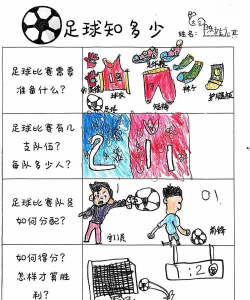 足球知多少
姓名:
足球比赛需要
准备什么?
足球
球衣
短裤
袜子
护腿板
足球比赛有几
支队伍?
每队多少人?
2
11
足球比赛队员
如何分配?
守门员
前锋
01
如何得分?
怎样才算胜
利?
1:2